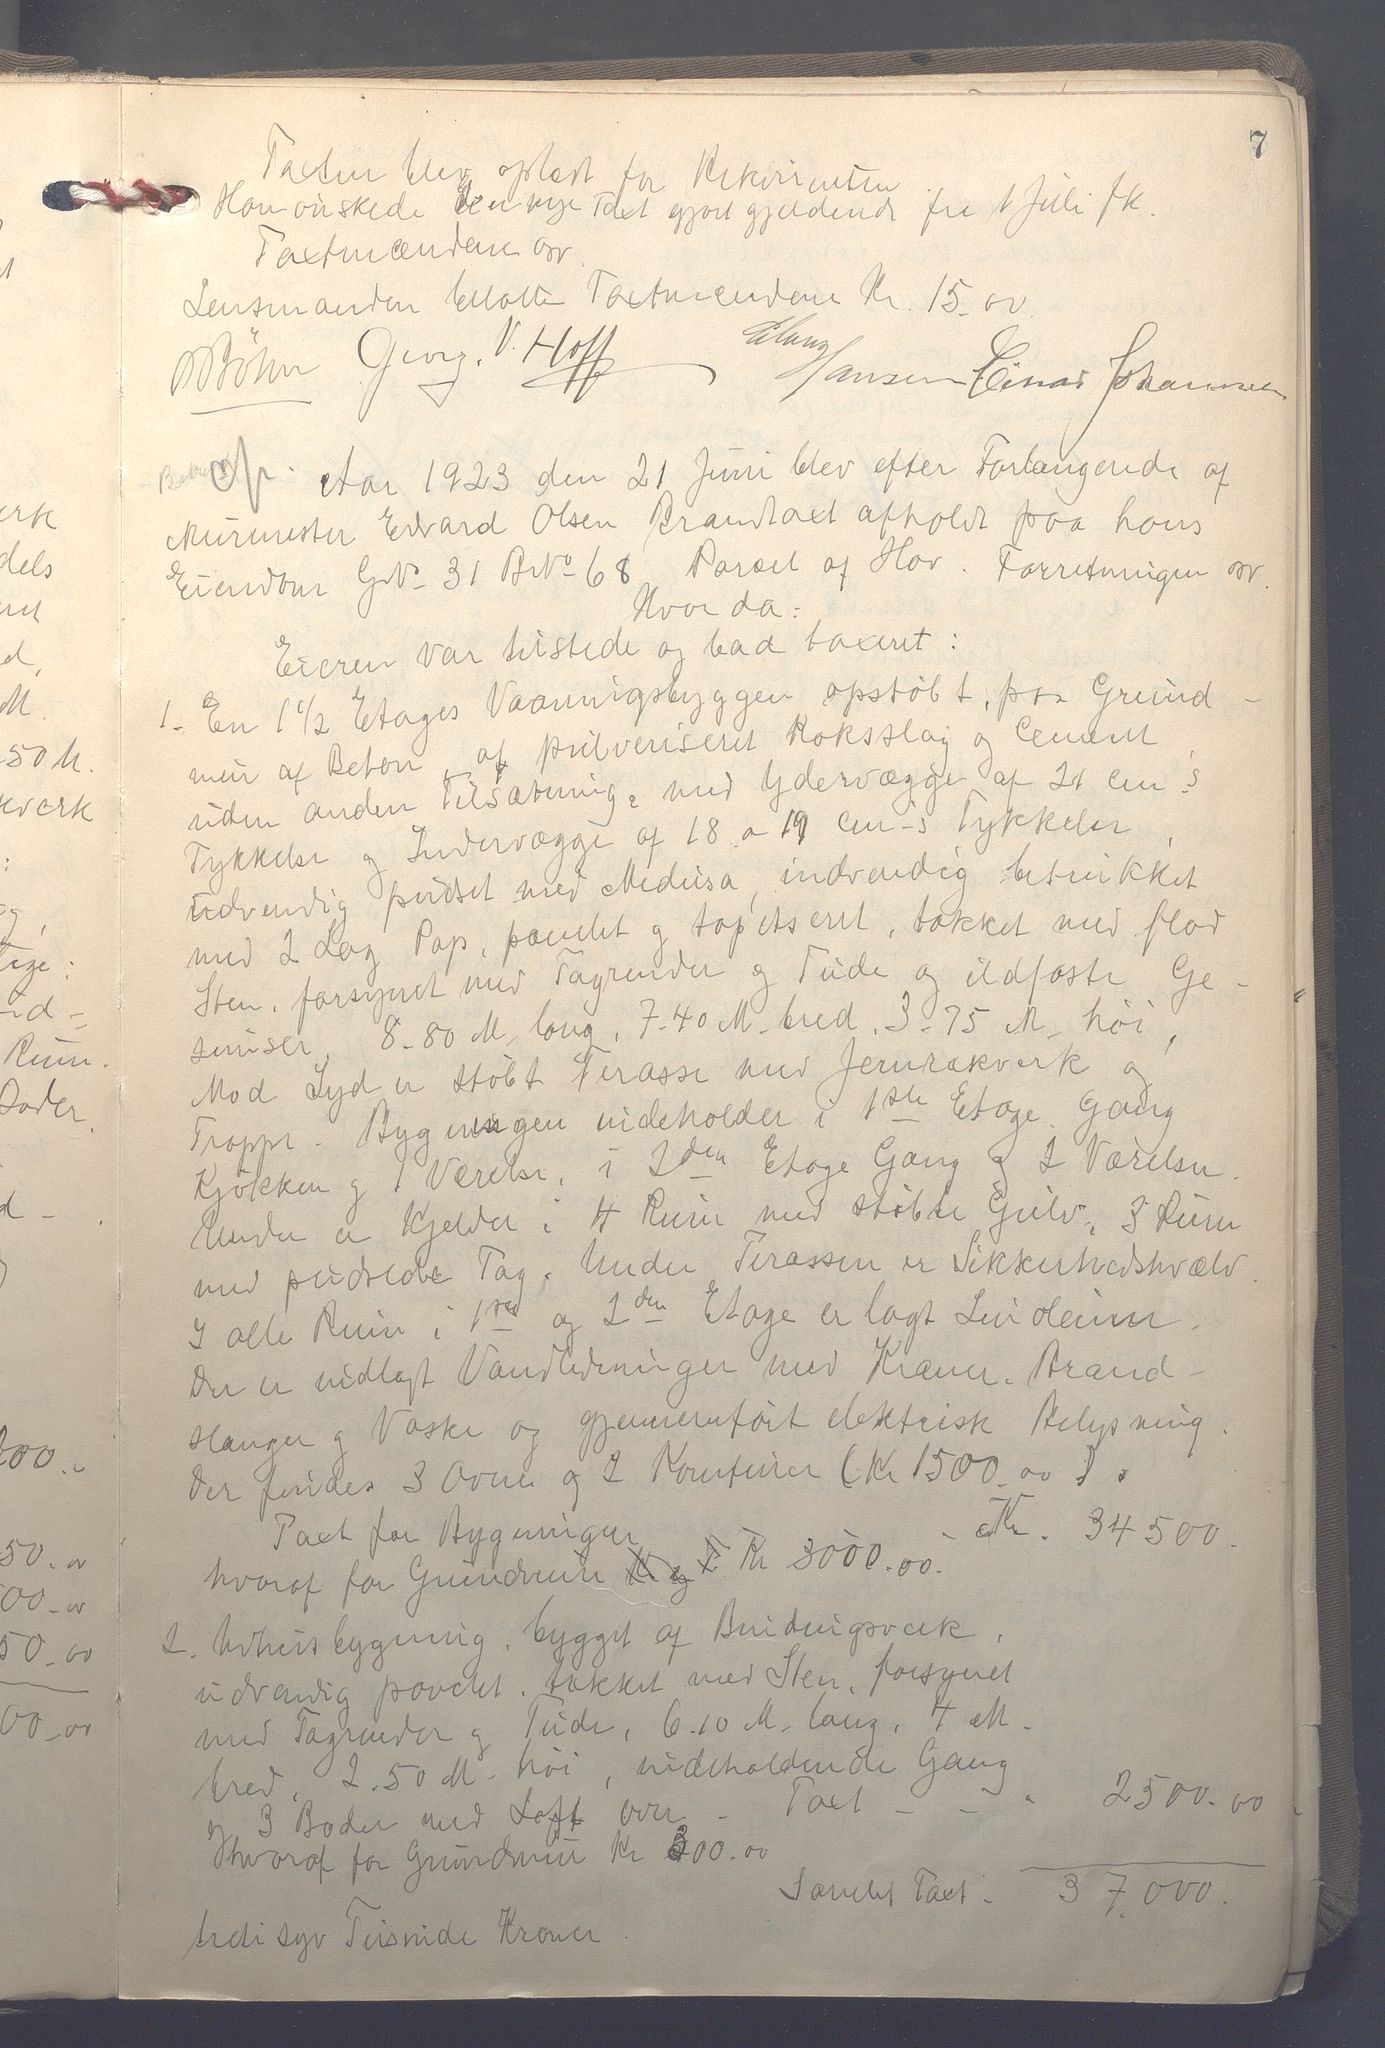 7
Taxten blev oplæst for Rekvirenten.
Han ønskede den nye Taxt gjort gjeldende fra 1 Juli fk.
Taxtmændene osv.
Lensmanden betalte Taxtmændene Kr. 15.00.
Böhn Georg. V. Hoff Hansen Einar Johannsen
Aar 1923 den 21 Juni blev efter Forlangende af
Murmester Edvard Olsen Brandtaxt afholdt paa hans
Eiendom GrNo 31 BrNo 68 Parcel af Hov. Forretningen osv.
Hvor da:
Eieren var tilstede og bad taxeret:
1- En 1 1/2 Etages Vaaningsbyggen opstöbt, paa Grund-
mur af Beton, af pulveriseret Koksslag og Cement,
uden anden Tilsætning, med Ydervægge af 21 cm's
Tykkelse og Indervægge af 18 a 19 cm-s Tykkelse,
udvendig pudset med Medusa, indvendig betrukket
med 2 Lag Pap, panelet og tapetseret, tækket med flad
Sten, forsynet med Tagrender og Tude og ildfaste Ge-
simser, 8-80 M lang, 7-40 M bred, 3-75 M høi,
Mod Syd er støbt Terasse med Jernrækverk og
Trappe. Bygningen indeholder i 1ste Etage Gang
Kjøkken og 1 Værelse, i 2den Etage Gang og 2 Værelser.
Under er Kjelder i 4 Rum med støbte Gulv, 3 Rum
med pudsede Tag. Under Terassen er Sikkerhedshvælv.
I alle Rum i 1ste og 2den Etage er lagt Linoleum.
Der er indlagt Vandledninger med Kraner. Brand-
slanger og Vaske og gjennemført elektrisk Belysning.
Der findes 3 Ovne og 2 Komfurer (Kr 1500.00).
Taxt for Bygningen - Kr. 34500.
hvoraf for Grundmur Kr 3000.00.
2. Udhusbygning, bygget af Bindingsværk,
udvendig panelet, tækket med Sten, forsynet
med Tagrender og Tude, 6.10 M lang, 4 M.
bred, 2.50 M høi, indeholdende Gang
og 3 Boder med Loft over - Taxt - - " 2500.00
Hvoraf for Grundmur Kr 300.00
Samlet Taxt. 37.000.
tredi syv Tusinde Kroner.